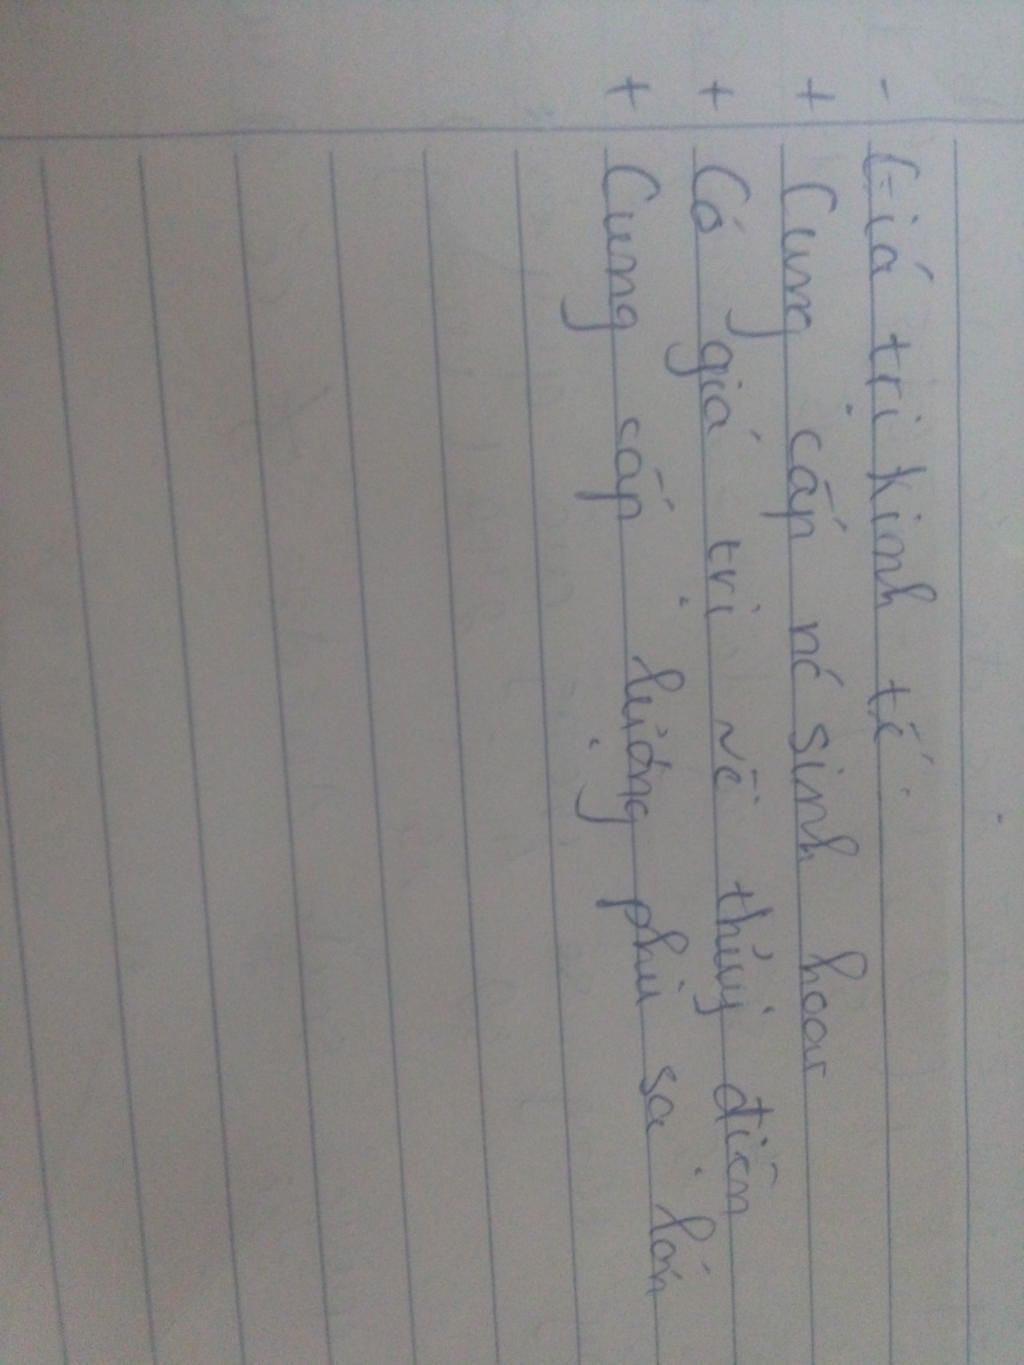 - Giá trị kinh tế:
+ Cung cấp nc sinh hoạt
+ Có giá trị về thủy điện
+ Cung cấp lượng phù sa lớn